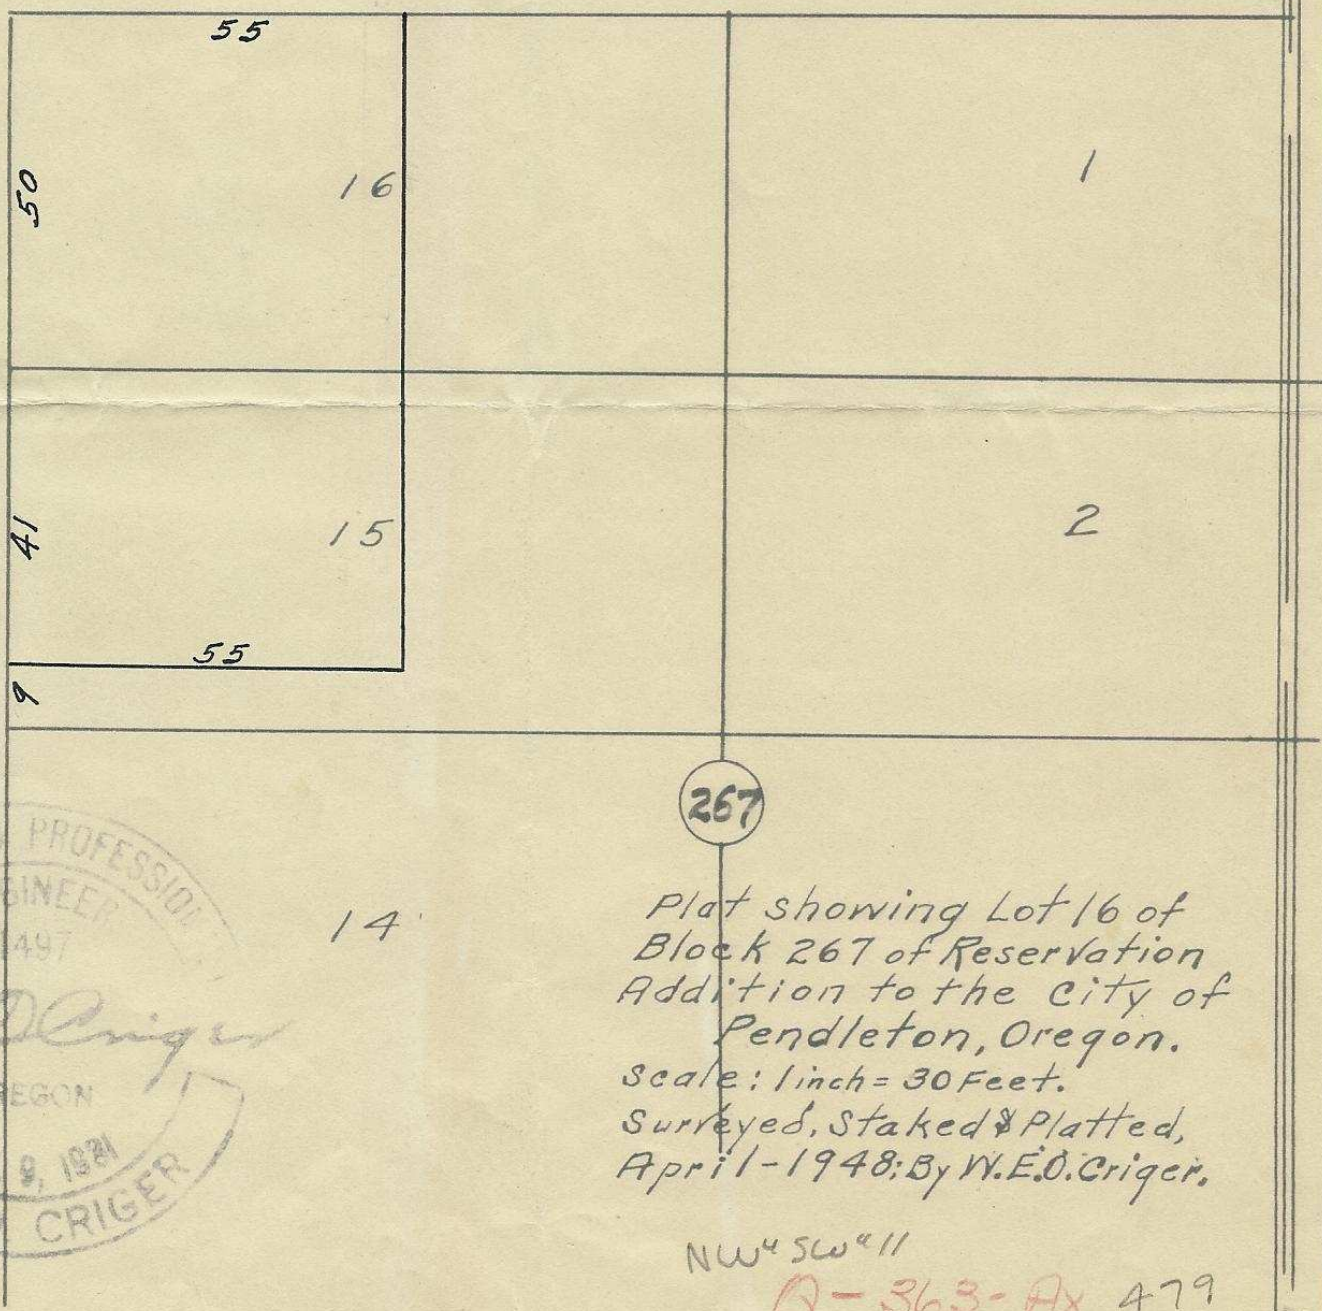 55
50
16
1
41
15
2
55
9
267
14
PROFESSION
GINEER
1497
D Criger
REGON
9, 1931
CRIGER
Plat showing Lot 16 of
Block 267 of Reservation
Addition to the City of
Pendleton, Oregon.
Scale: 1 inch = 30 Feet.
Surveyed, Staked & Platted,
April-1948; By W.E.D. Criger.
NW" SW" 11
Q-363-Ax 479